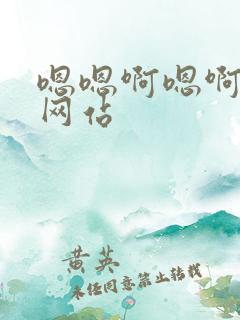 嗯嗯啊嗯啊
网佔
黄英
未经同意禁止转载